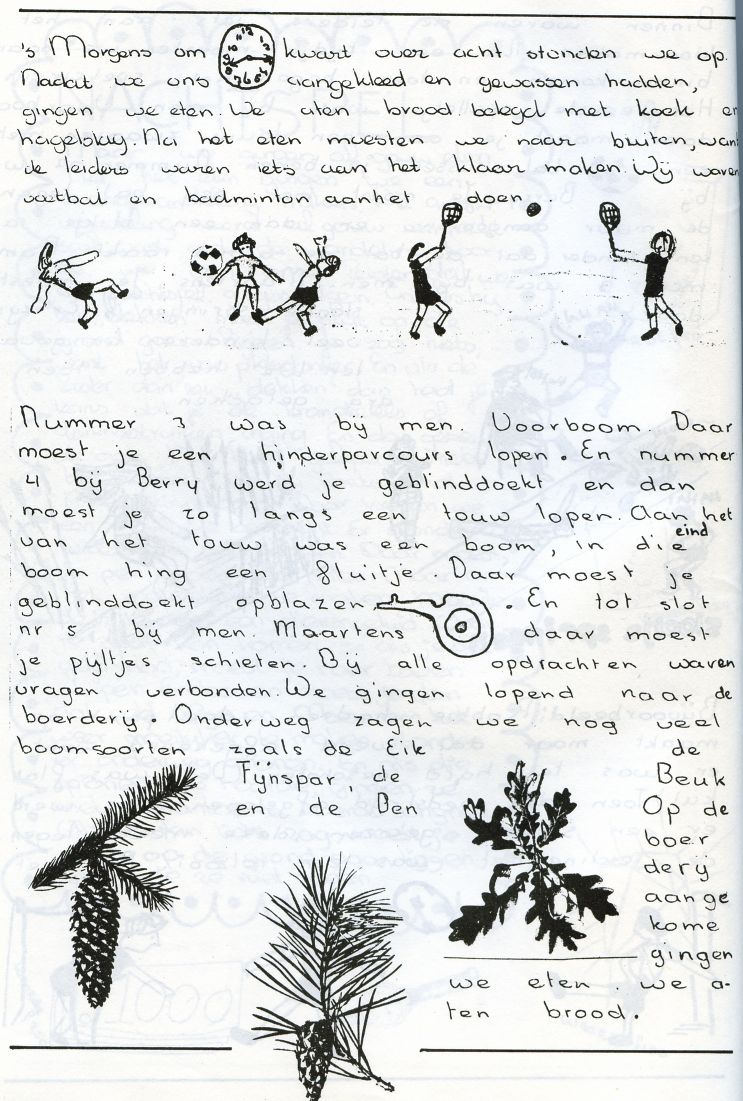 's Morgens om kwart over acht stonden we op.
Nadat we ons aangekleed en gewassen hadden,
gingen we eten. We aten brood belegd met koek en
hagelslag. Na het eten moesten we naar buiten, want
de leiders waren iets aan het klaar maken. Wij waren
voetbal en badminton aanhet doen.
Nummer 3 was bij men. Voorboom. Daar
moest je een hinderparcours lopen. En nummer
4 bij Berry werd je geblinddoekt en dan
moest je zo langs een touw lopen. Aan het eind
van het touw was een boom, in die
boom hing een fluitje. Daar moest je
geblinddoekt opblazen. En tot slot
nr 5 bij men. Maartens daar moest
je pijltjes schieten. Bij alle opdrachten waren
vragen verbonden. We gingen lopend naar de
boerderij. Onderweg zagen we nog veel
boomsoorten zoals de Eik de
Fijnspar, de Beuk
en de Den Op de
boer
derij
aange
kome
gingen
we eten. we a-
ten brood.